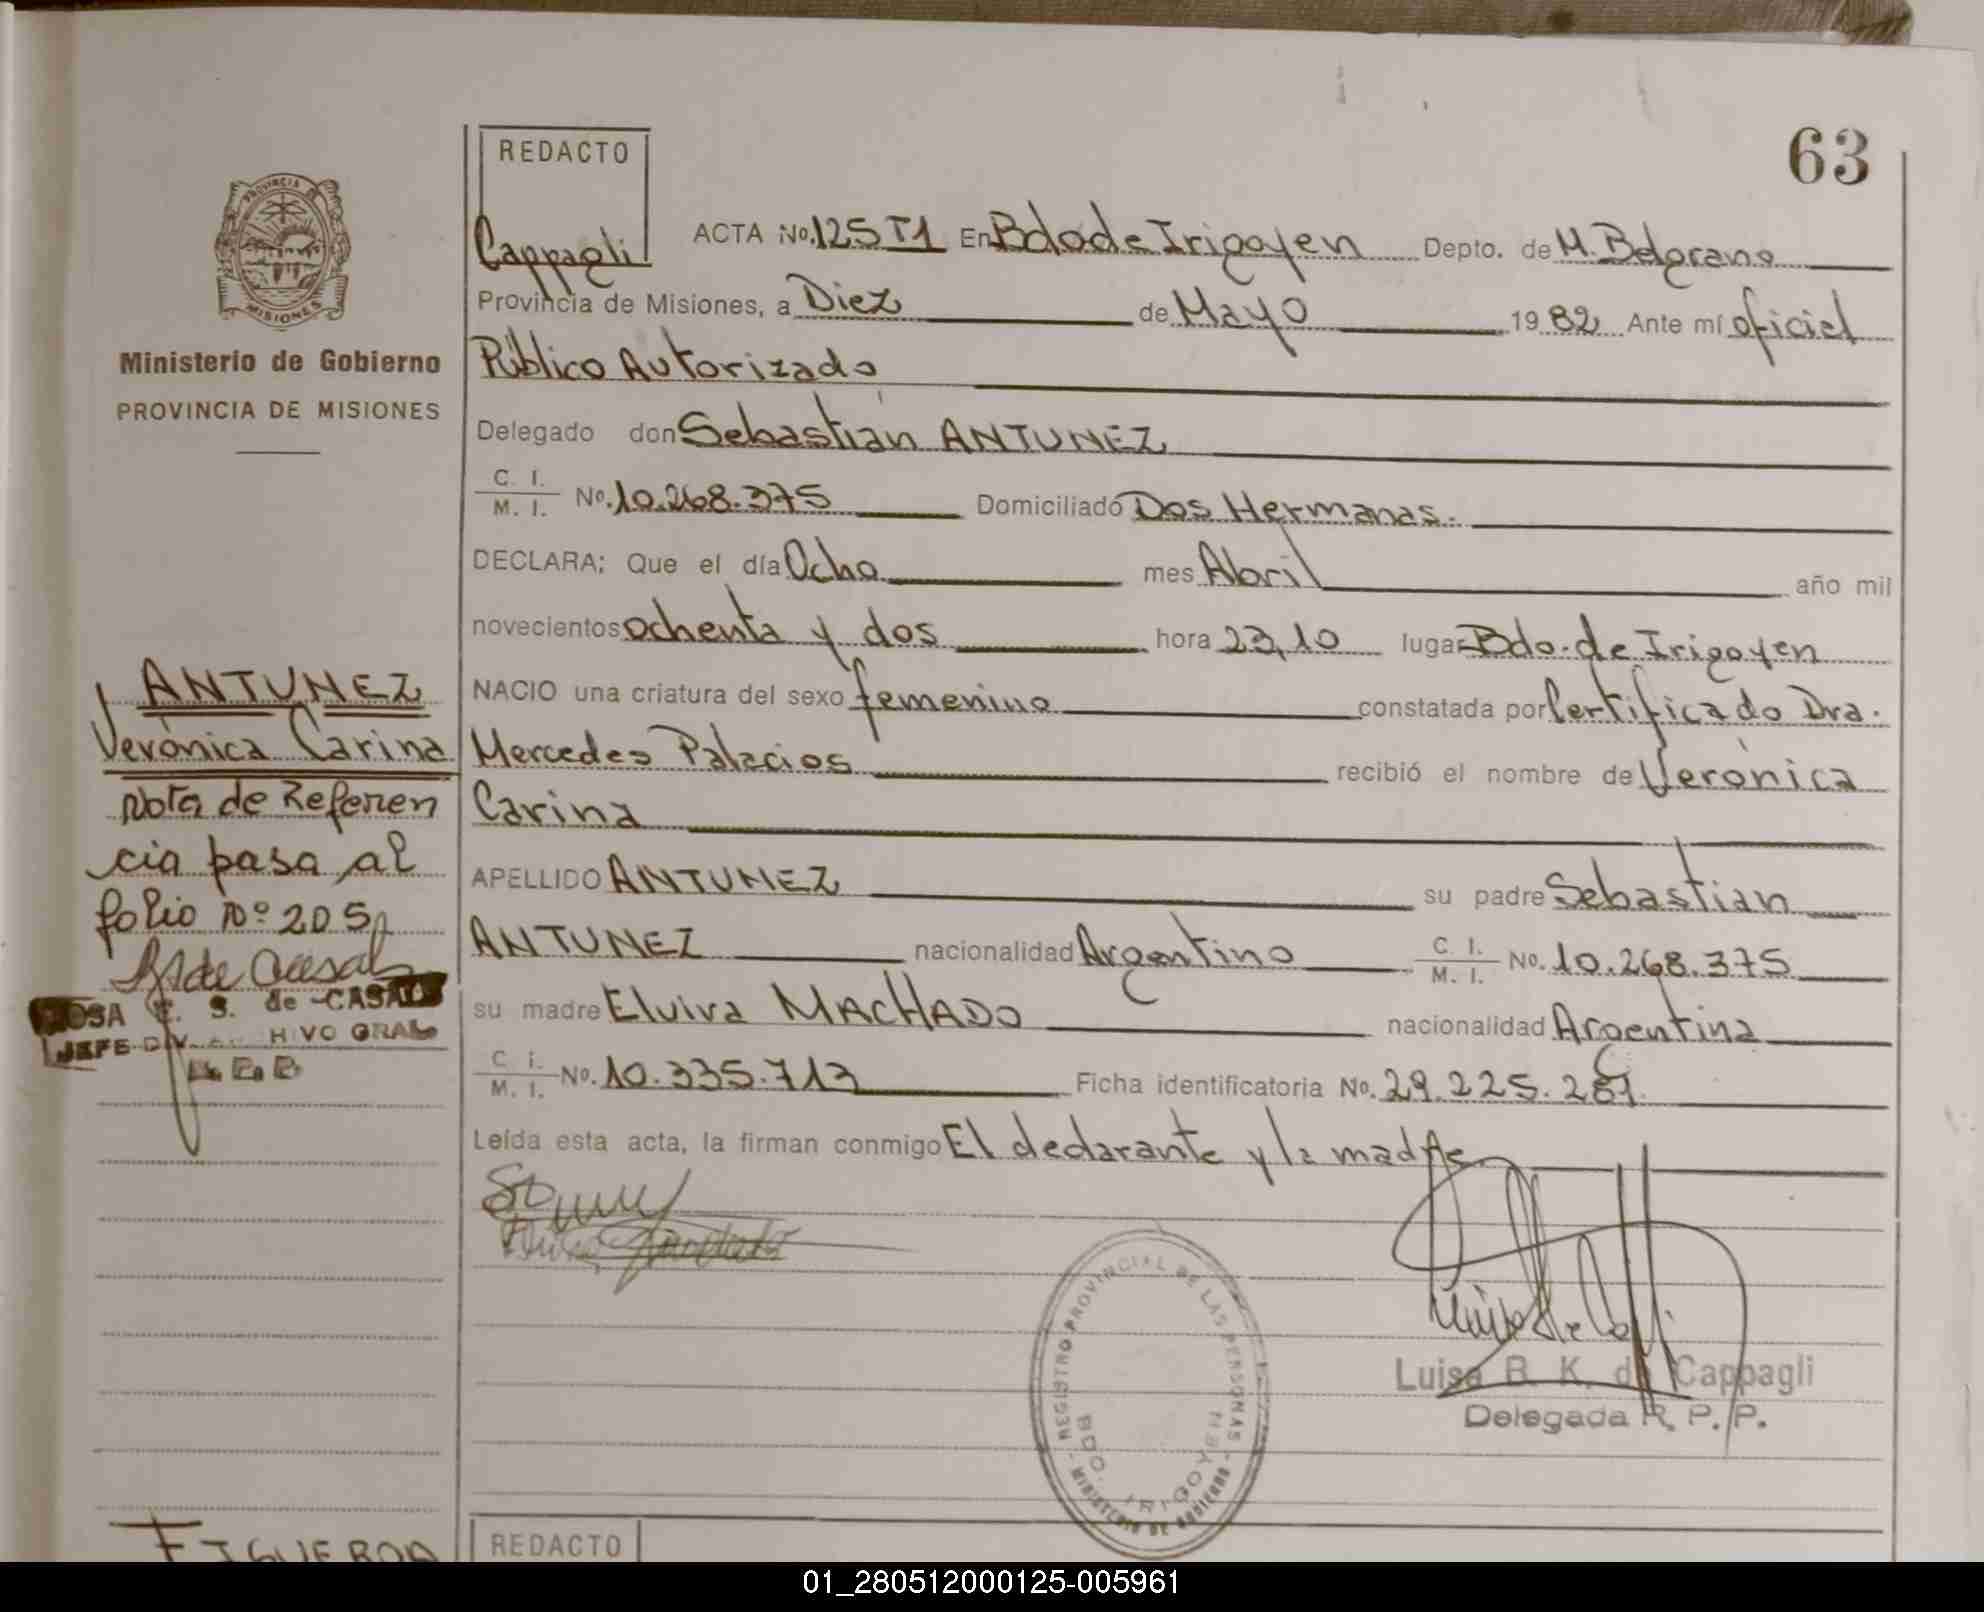 63
REDACTO
Cappagli
ACTA No. 125 T1 En Bdo de Irigoyen Depto. de M. Belgrano
Provincia de Misiones, a Diez de Mayo 1982 Ante mí oficial
Público Autorizado
Delegado don Sebastián ANTUNEZ
C. I. / M. I. No. 10.268.375 Domiciliado Dos Hermanas.
DECLARA: Que el día Ocho mes Abril año mil
novecientos ochenta y dos hora 23,10 lugar Bdo. de Irigoyen
NACIO una criatura del sexo femenino constatada por Certificado Dra.
Mercedes Palacios recibió el nombre de Verónica
Carina
APELLIDO ANTUNEZ su padre Sebastian
ANTUNEZ nacionalidad Argentino C. I. / M. I. No. 10.268.375
su madre Elvira MACHADO nacionalidad Argentina
C. I. / M. I. No. 10.335.713 Ficha identificatoria No. 29.225.281.
Leída esta acta, la firman conmigo El declarante y la madre
Luisa B. K. de Cappagli
Delegada R. P. P.
REGISTRO PROVINCIAL DE LAS PERSONAS - MINISTERIO DE GOBIERNO -
BDO. IRIGOYEN
PROVINCIA DE
MISIONES
Ministerio de Gobierno
PROVINCIA DE MISIONES
ANTUNEZ
Verónica Carina
Nota de Referen
cia pasa al
folio Nº 205
R de Casals
ROSA E. S. de CASALS
JEFE DIV. ARCHIVO GRAL
R. P. P.
FIGUEROA
REDACTO
01_280512000125-005961